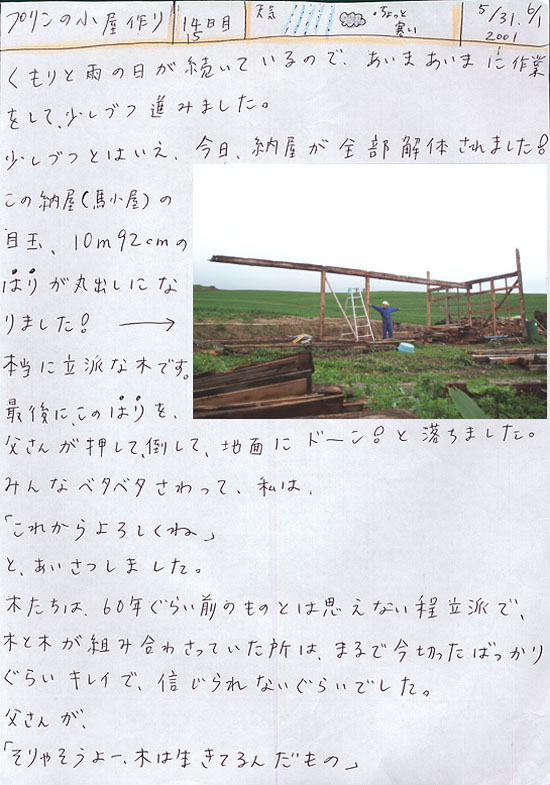 プリンの小屋作り 14 15日目 天気 ・ちょっと寒い 5/31. 6/1 2001
くもりと雨の日が続いているので、あいまあいまに作業
をして、少しづつ進みました。
少しづつとはいえ、今日、納屋が全部解体されました!
この納屋(馬小屋)の
目玉、10m92cmの
はりが丸出しにな
りました! →
本当に立派な木です。
最後に、このはりを、
父さんが押して、倒して、地面にドーン!と落ちました。
みんなベタベタさわって、私は、
「これからよろしくね」
と、あいさつしました。
木たちは、60年ぐらい前のものとは思えない程立派で、
木と木が組み合わさっていた所は、まるで今切ったばっかり
ぐらいキレイで、信じられないぐらいでした。
父さんが、
「そりゃそうよー、木は生きてるんだもの」